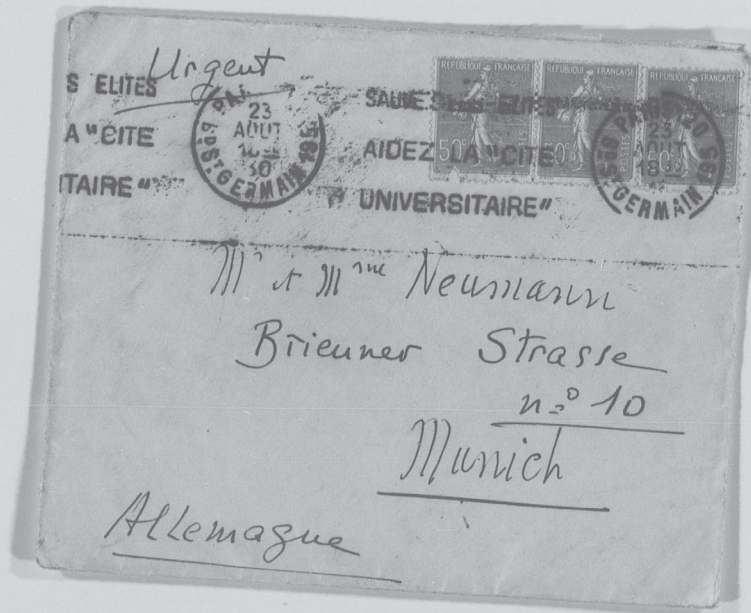 Urgent
S ELITES
A "CITE
ITAIRE"
23
AOUT
30
Bd St GERMAIN
SAUVE LES ELITES
AIDEZ LA "CITE
UNIVERSITAIRE"
REPUBLIQUE FRANÇAISE
REPUBLIQUE FRANÇAISE
REPUBLIQUE FRANÇAISE
50c
PARIS
23
AOUT
Bd St GERMAIN
Mr et Mme Neumann
Brienner Strasse
n.º 10
Munich
Allemagne